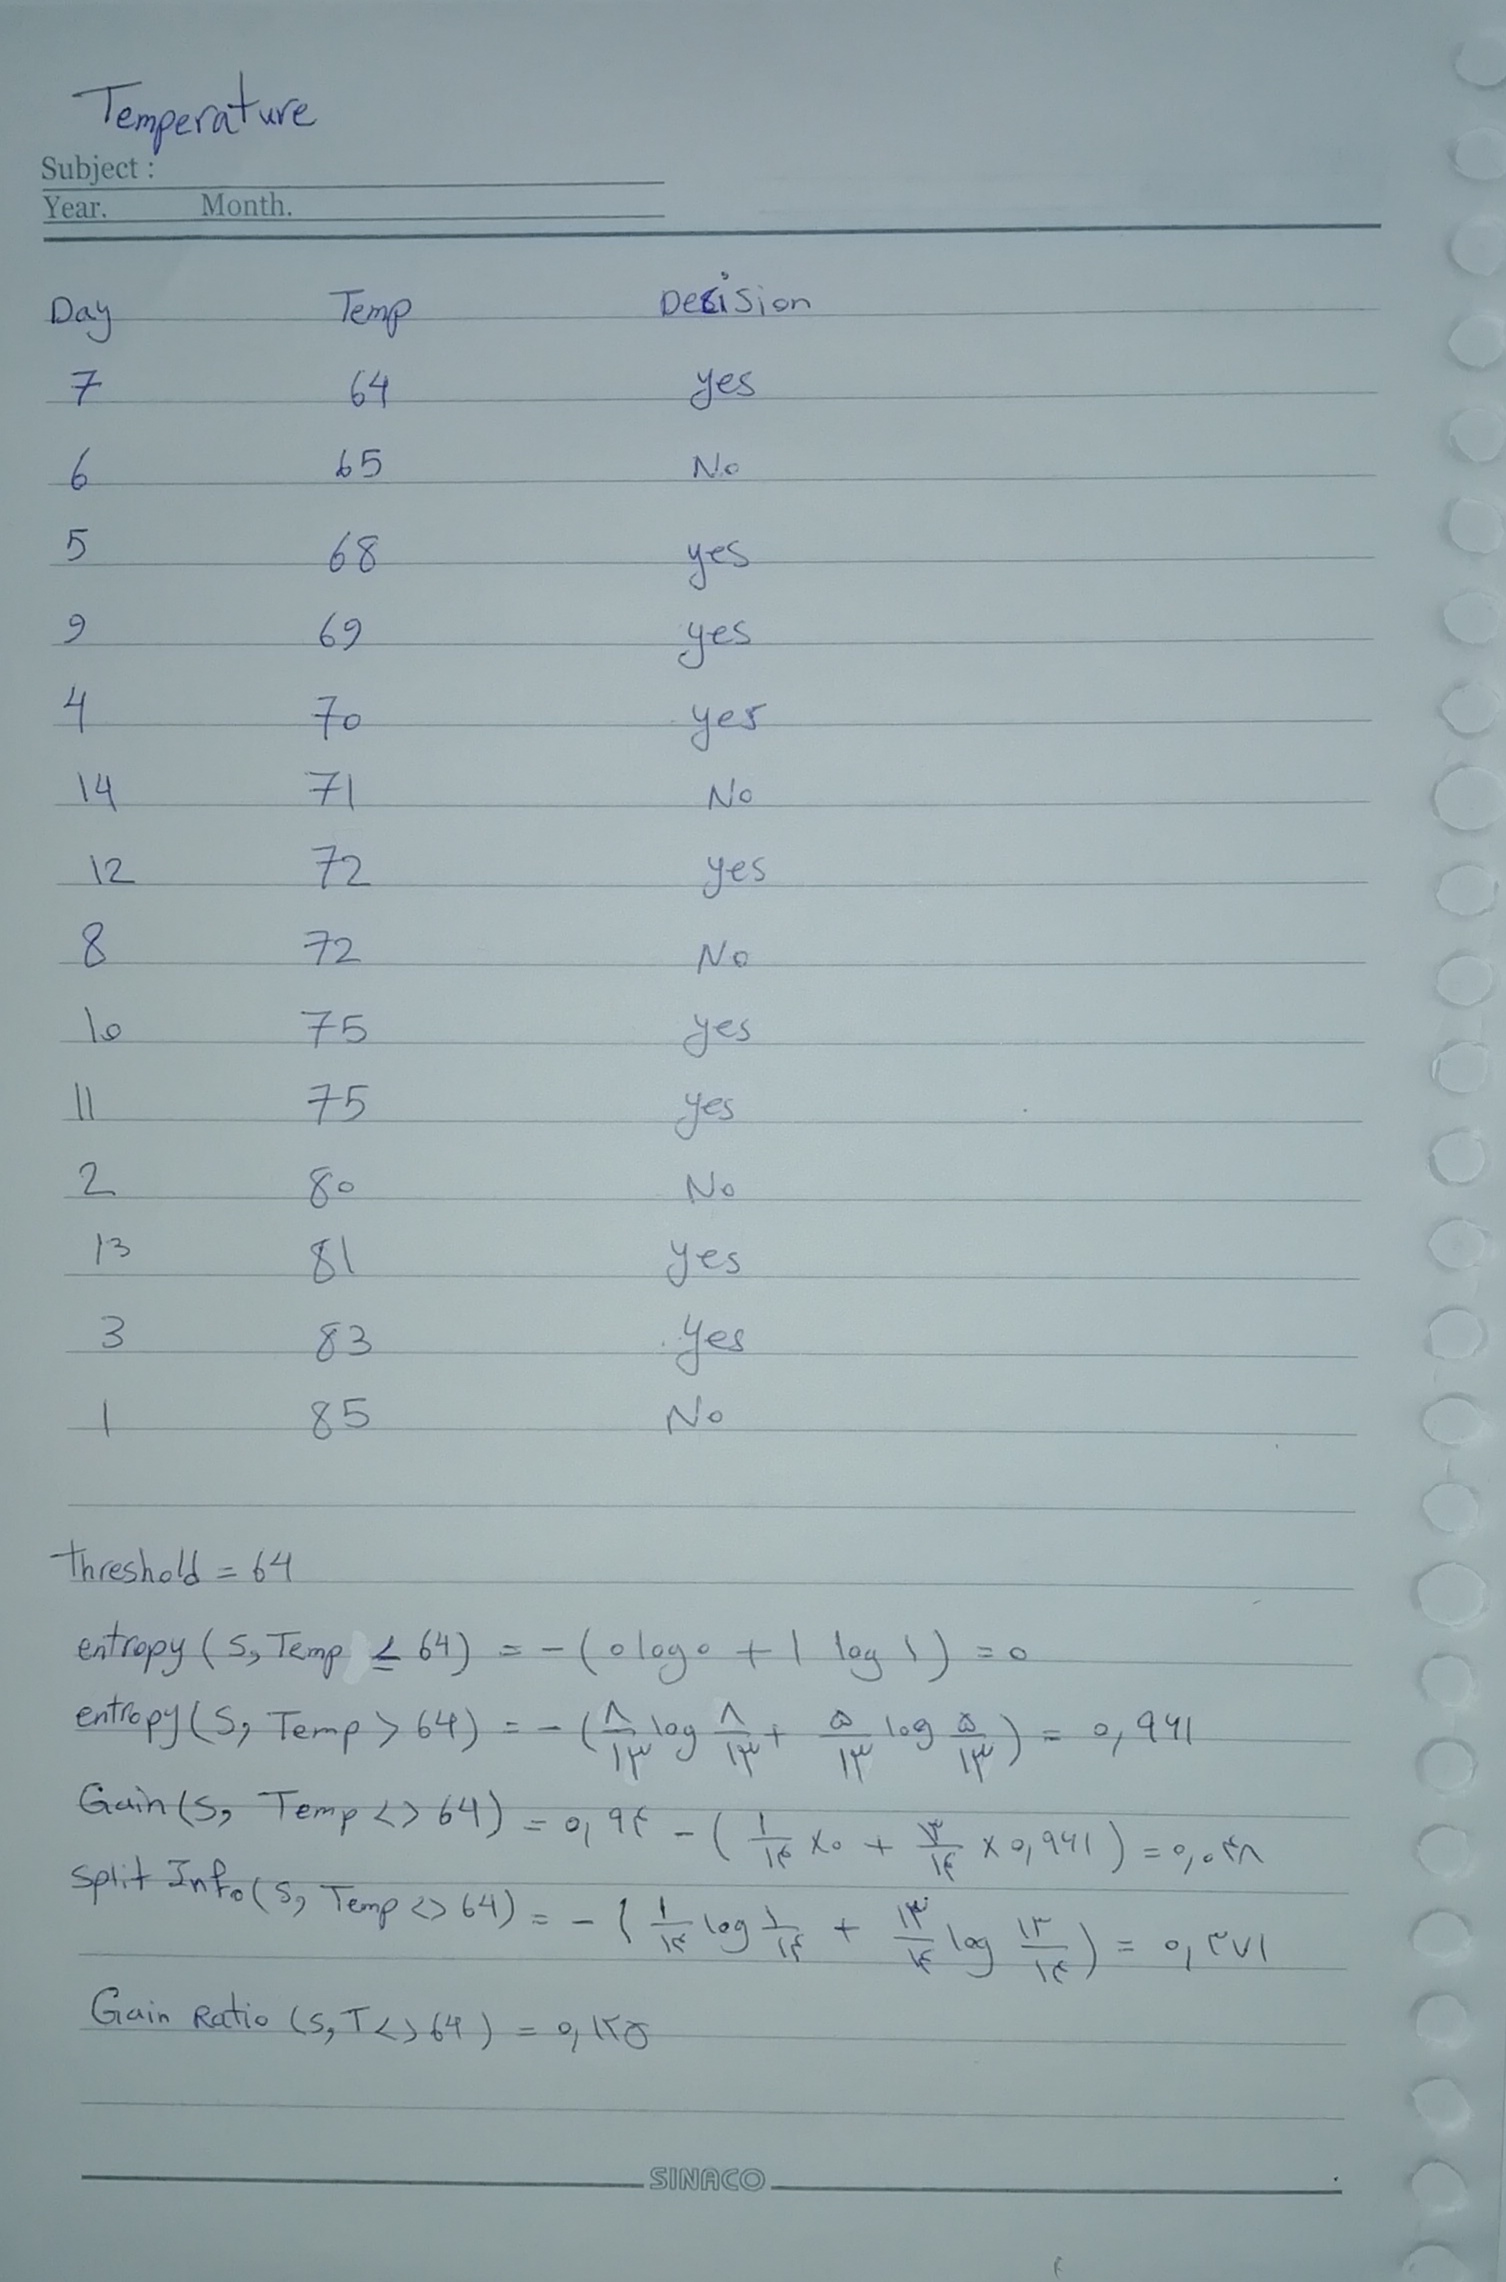 Temperature
Subject :
Year. Month.
Day Temp Decision
7 64 yes
6 65 No
5 68 yes
9 69 yes
4 70 yes
14 71 No
12 72 yes
8 72 No
10 75 yes
11 75 yes
2 80 No
13 81 yes
3 83 yes
1 85 No
threshold = 64
entropy (S, Temp ≤ 64) = - (0 log 0 + 1 log 1) = 0
entropy (S, Temp > 64) = - (۸/۱۳ log ۸/۱۳ + ۵/۱۳ log ۵/۱۳) = ۰,۹۶۱
Gain (S, Temp <> 64) = ۰,۹۴ - (۱/۱۴ × ۰ + ۱۳/۱۴ × ۰,۹۶۱) = ۰,۰۴۸
Split Info (S, Temp <> 64) = - (۱/۱۴ log ۱/۱۴ + ۱۳/۱۴ log ۱۳/۱۴) = ۰,۳۷۱
Gain Ratio (S, T <> 64) = ۰,۱۲۵
SINACO